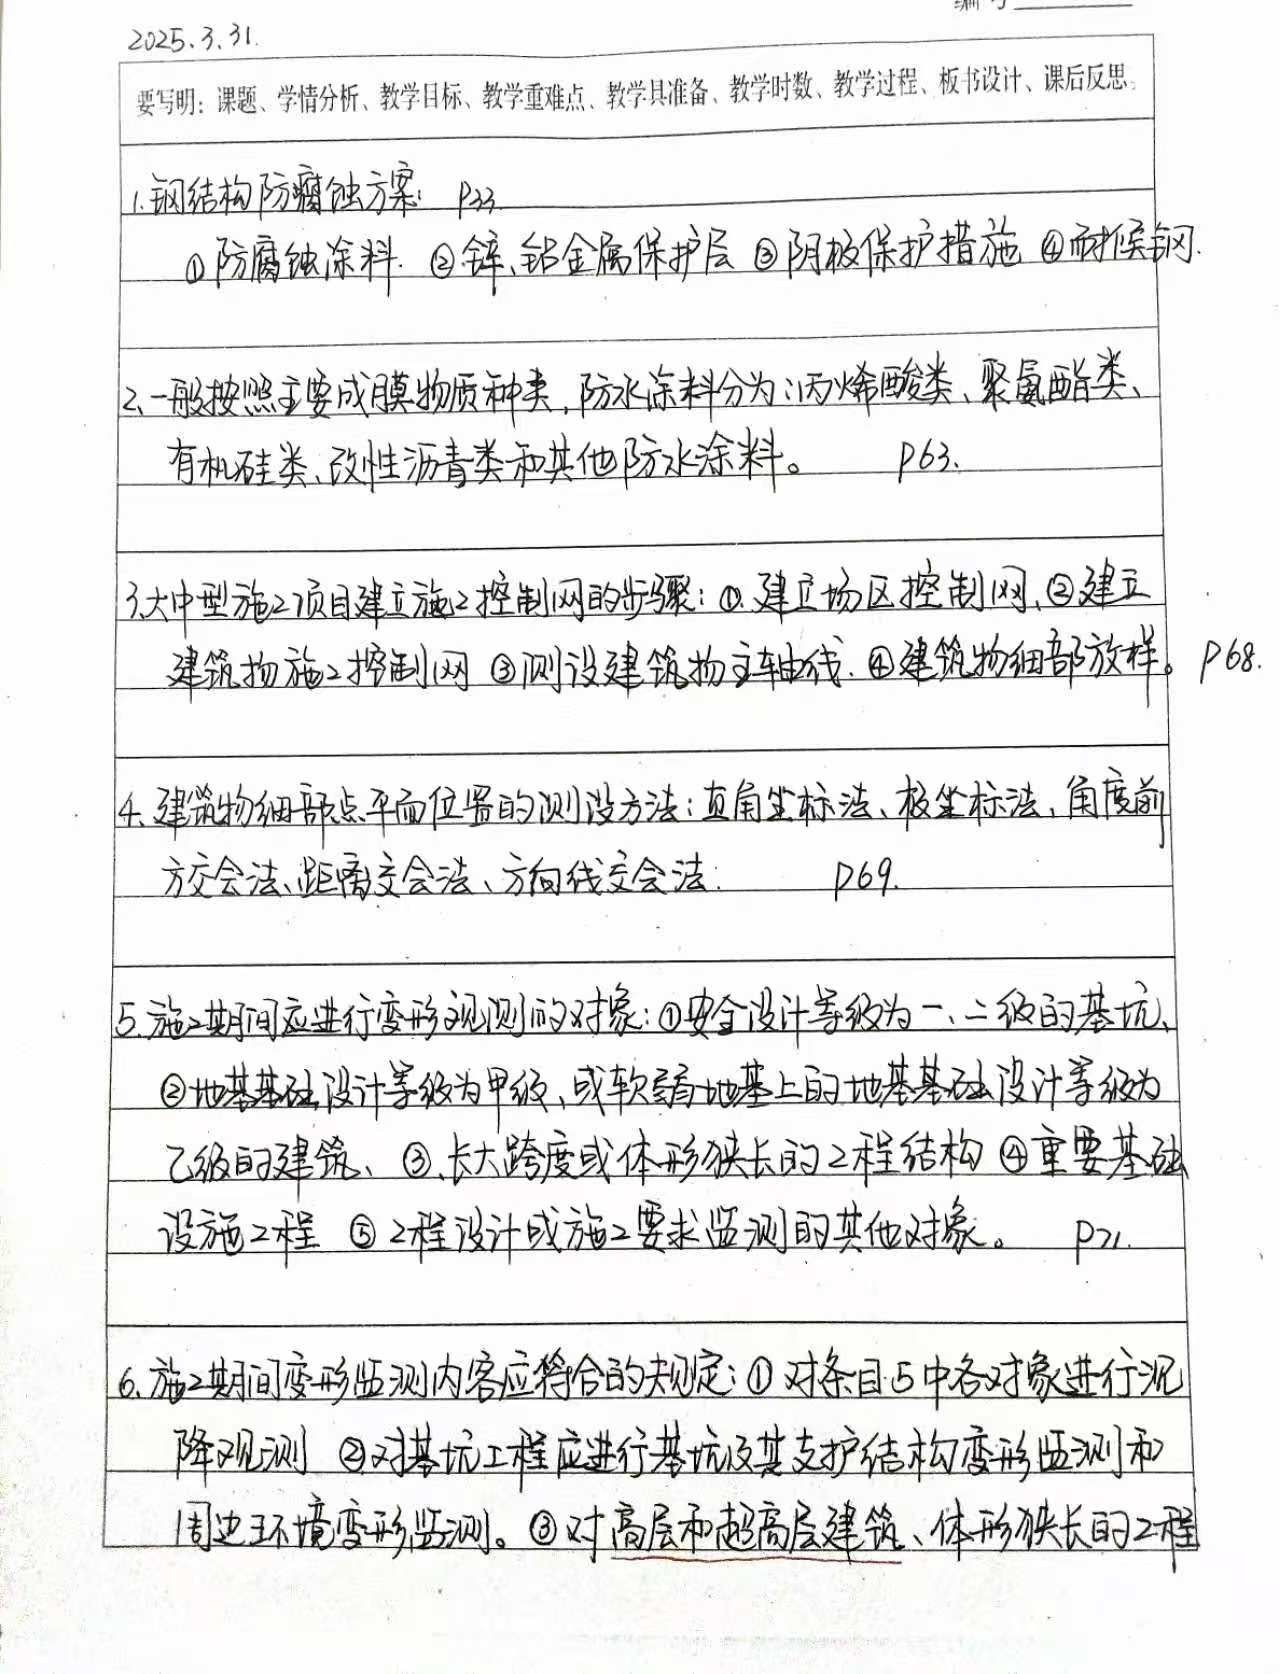 编号
2025.3.31.
要写明：课题、学情分析、教学目标、教学重难点、教学具准备、教学时数、教学过程、板书设计、课后反思。
1.钢结构防腐蚀方案： P33
①防腐蚀涂料. ②锌、铝金属保护层 ③阴极保护措施 ④耐候钢.
2.一般按照主要成膜物质种类，防水涂料分为：丙烯酸类、聚氨酯类、
有机硅类、改性沥青类和其他防水涂料。 P63.
3.大中型施工项目建立施工控制网的步骤：①.建立场区控制网、②建立
建筑物施工控制网 ③测设建筑物主轴线. ④建筑物细部放样。 P68.
4.建筑物细部点平面位置的测设方法：直角坐标法、极坐标法、角度前
方交会法、距离交会法、方向线交会法. P69.
5.施工期间应进行变形观测的对象：①安全设计等级为一、二级的基坑、
②地基基础设计等级为甲级、或软弱地基上的地基基础设计等级为
乙级的建筑、③.长大跨度或体形狭长的工程结构 ④重要基础
设施工程 ⑤工程设计或施工要求监测的其他对象。 P71.
6.施工期间变形监测内容应符合的规定：①对条目5中各对象进行沉
降观测 ②对基坑工程应进行基坑及其支护结构变形监测和
周边环境变形监测。③对高层和超高层建筑、体形狭长的工程